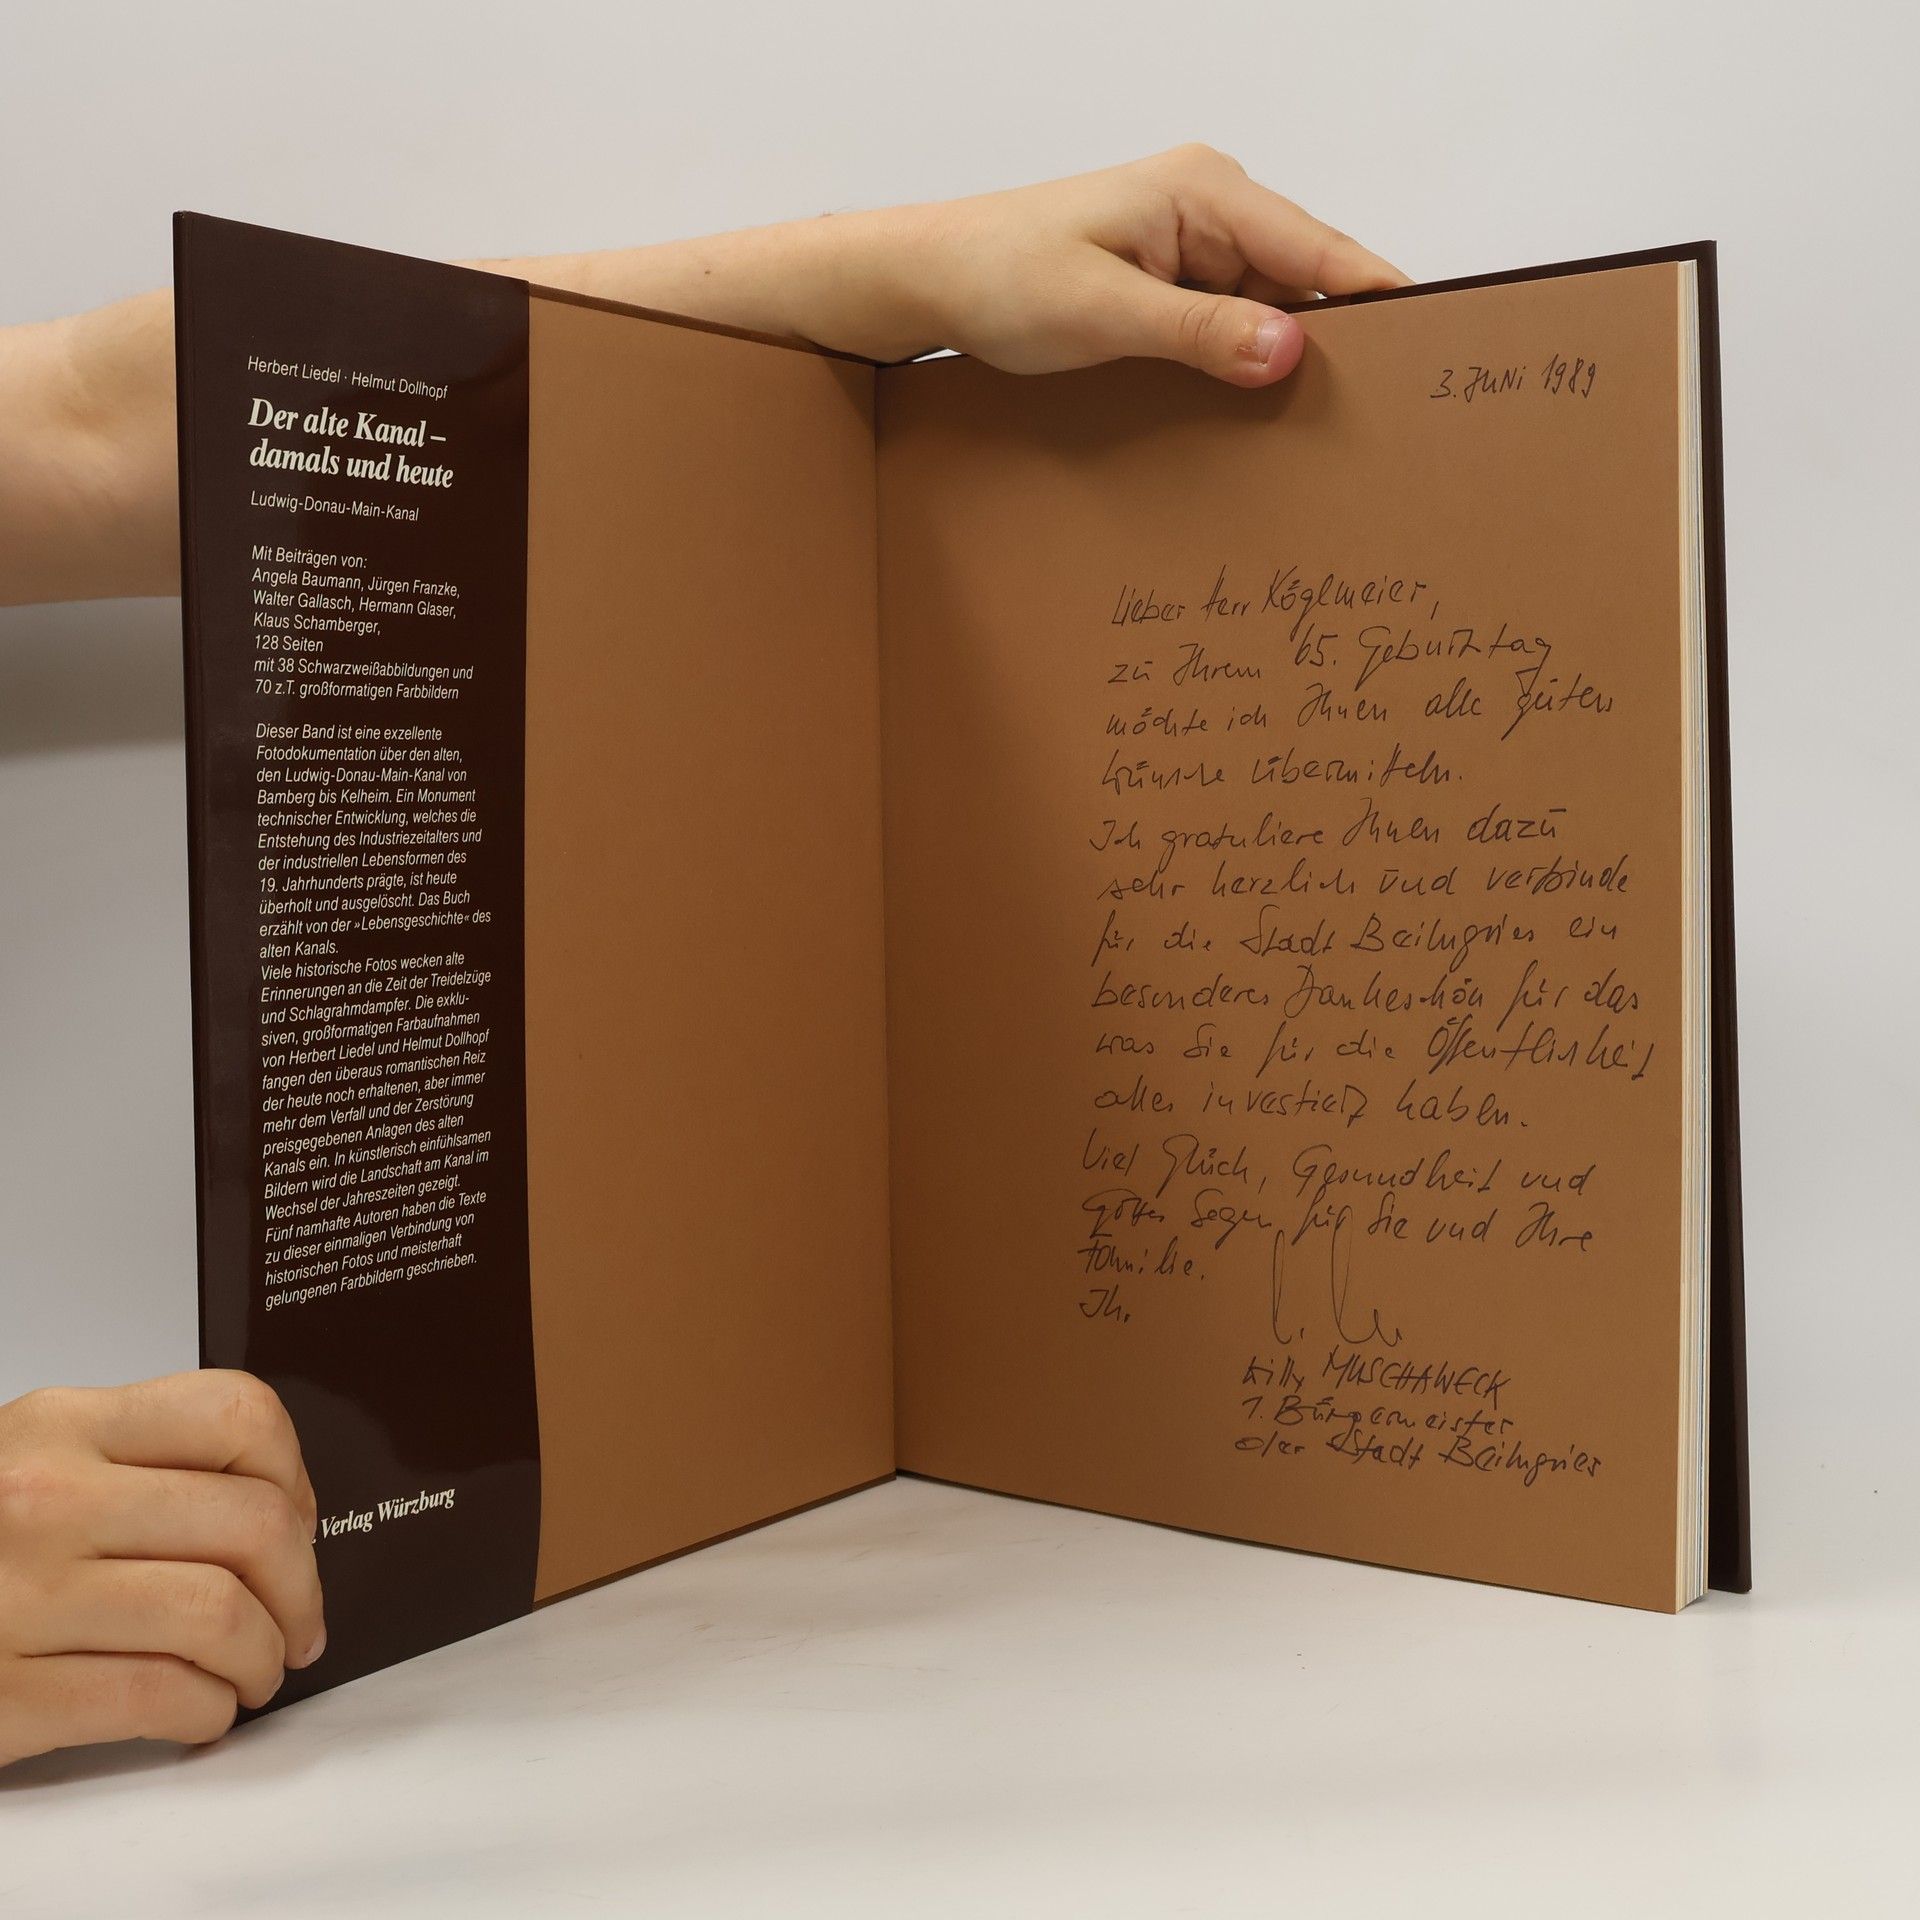 Herbert Liedel · Helmut Dollhopf
Der alte Kanal –
damals und heute
Ludwig-Donau-Main-Kanal
Mit Beiträgen von:
Angela Baumann, Jürgen Franzke,
Walter Gallasch, Hermann Glaser,
Klaus Schamberger,
128 Seiten
mit 38 Schwarzweißabbildungen und
70 z.T. großformatigen Farbbildern
Dieser Band ist eine exzellente
Fotodokumentation über den alten,
den Ludwig-Donau-Main-Kanal von
Bamberg bis Kelheim. Ein Monument
technischer Entwicklung, welches die
Entstehung des Industriezeitalters und
der industriellen Lebensformen des
19. Jahrhunderts prägte, ist heute
überholt und ausgelöscht. Das Buch
erzählt von der »Lebensgeschichte« des
alten Kanals.
Viele historische Fotos wecken alte
Erinnerungen an die Zeit der Treidelzüge
und Schlagrahmdampfer. Die exklu-
siven, großformatigen Farbaufnahmen
von Herbert Liedel und Helmut Dollhopf
fangen den überaus romantischen Reiz
der heute noch erhaltenen, aber immer
mehr dem Verfall und der Zerstörung
preisgegebenen Anlagen des alten
Kanals ein. In künstlerisch einfühlsamen
Bildern wird die Landschaft am Kanal im
Wechsel der Jahreszeiten gezeigt.
Fünf namhafte Autoren haben die Texte
zu dieser einmaligen Verbindung von
historischen Fotos und meisterhaft
gelungenen Farbbildern geschrieben.
Verlag Würzburg
3. JUNI 1989
Lieber Herr Köglmeier,
zu Ihrem 65. Geburtstag
möchte ich Ihnen alle guten
Wünsche übermitteln.
Ich gratuliere Ihnen dazu
sehr herzlich und verbinde
für die Stadt Beilngries ein
besonderes Dankeschön für das
was Sie für die Öffentlichkeit
alles investiert haben.
Viel Glück, Gesundheit und
Gottes Segen für Sie und Ihre
Familie.
Ihr
Willy MUSCHAWECK
1. Bürgermeister
der Stadt Beilngries